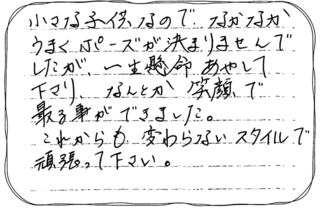 小さな子供なので なかなか
うまくポーズが決まりませんで
したが、一生懸命 あやして
下さり、なんとか 笑顔で
事ができました。
これからも、変わらないスタイルで
頑張って下さい。